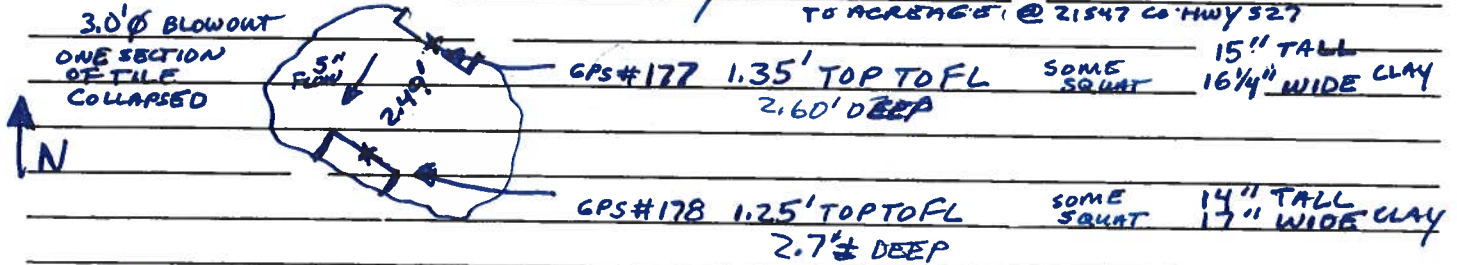 TO ACREAGE. @ 21547 CO. HWY S27
3.0'Ø BLOWOUT
ONE SECTION
OF TILE
COLLAPSED
5"
FLOW
2.49'
N
GPS#177 1.35' TOP TO FL SOME SQUAT 15" TALL 16 1/4" WIDE CLAY
2.60' DEEP
GPS#178 1.25' TOP TO FL SOME SQUAT 14" TALL 17" WIDE CLAY
2.7'± DEEP